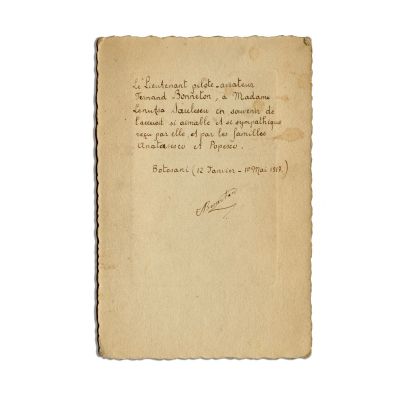 Le Lieutenant pilote-aviateur
Fernand Bonneton, à Madame
Lenutza Saulescu en souvenir de
l'accueil si aimable et si sympathique
reçu par elle et par les familles
Anatasesco et Popesco.
Botosani (12 Janvier - 10 Mai 1917.)
Bonneton